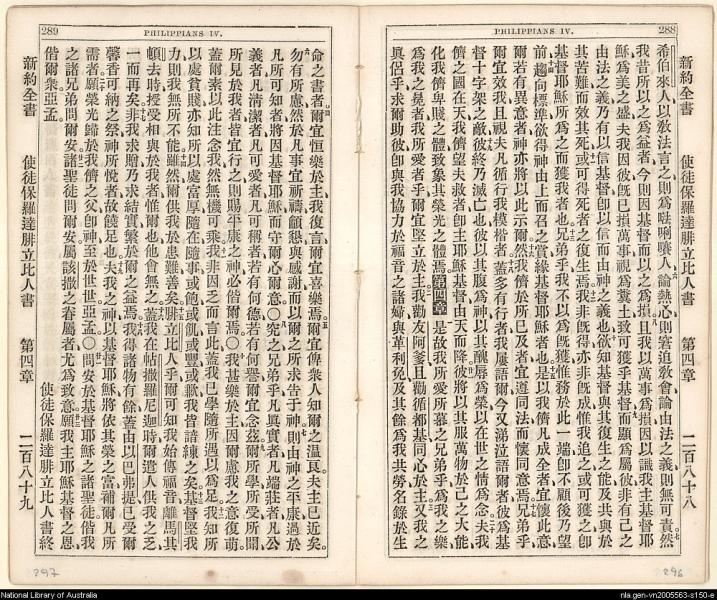 PHILIPPIANS IV.
288
新約全書 使徒保羅達腓立比人書 第四章 二百八十八
希伯來人以教法言之則為𠵽唎㘔人、論熱心則窘迫教會論由法之義則無可責然
我昔所以之為益者今則因基督而以之為損且我以萬事為損因以識我主基督耶
穌為美之盛夫我因彼旣已損萬事視為糞土致可獲乎基督而顯為屬彼非有己之
由法之義乃有以信基督卽以信而由神之義也欲知基督與其復生之能及共與於
其苦難而效其死或可得死者之復生焉我非旣得亦非旣成惟我追之或可獲之卽
基督耶穌所為之而獲我者也兄弟乎我不以為旣獲惟務於此一端卽不顧後乃望
前趨向標準欲得神由上而召之賞緣基督耶穌者也是以我儕凡成全者宜懷此意
爾若有異意者神亦將以此示爾然我儕於所已及者宜遵同法而懷同意焉兄弟乎
爾宜效我且視夫凡循行我模楷者蓋多有行者我屢語爾今又涕泣語爾者彼為基
督十字架之敵彼終乃滅亡也彼以其腹為神以其醜辱為榮以在世之情為念夫我
儕之國在天我儕望夫救者卽主耶穌基督由天而降彼將以其服萬物於己之大能
化我儕卑賤之體致象其榮光之體焉第四章是故我所愛所慕之兄弟乎為我之樂
為我之冕者我所愛者乎爾宜堅立於主我勸友阿爹且勸循都基同心於主又我之
眞侶乎求爾助彼卽與我協力於福音之諸婦與革利免及其餘為我共勞名錄於生
289
PHILIPPIANS IV.
命之書者爾宜恒樂於主我復言爾宜喜樂焉宜俾衆人知爾之溫良夫主已近矣
勿有所慮然於凡事宜祈禱龥懇與感謝而以爾之所求告于神則由神之平康過於
凡所可知者將因基督耶穌而守爾心爾意〇究之兄弟乎凡眞實者凡端莊者凡公
義者凡清潔者凡可愛者凡可稱者若有何德若有何譽爾宜念茲爾所學所受所聞
所見於我者皆宜行之則賜平康之神必偕爾焉〇我甚樂於主因爾慮我之意復萌
蓋爾素以此注念我然無機可乘我非因乏而言此蓋我已學隨所遇以為足我知所
以處貧賤亦知所以處富厚隨在隨事或飽或飢或豐或歉我皆諳練之矣基督堅我
力則我無所不能雖然爾供我於患難善矣腓立比人乎爾可知我始傳福音離馬其
頓去時授受相與於我者惟爾也他會無之蓋我在帖撒羅尼迦時爾遣人供我之乏
一而再矣非我求贈乃求結實繁於爾之益焉我得諸物有餘蓋由以巴弗提已受爾
馨香可納之祭神所悅者故饒足也夫我之神以基督耶穌將依其榮之富補爾凡所
需者願榮光歸於我儕之父卽神至於世世亞孟〇問安於基督耶穌之諸聖徒偕我
之諸兄弟問爾安諸聖徒問爾安屬該撒之眷屬者尤為致意願我主耶穌基督之恩
偕爾衆亞孟 使徒保羅達腓立比人書終
新約全書 使徒保羅達腓立比人書 第四章 二百八十九
297
296
National Library of Australia
nla.gen-vn2005563-s150-e